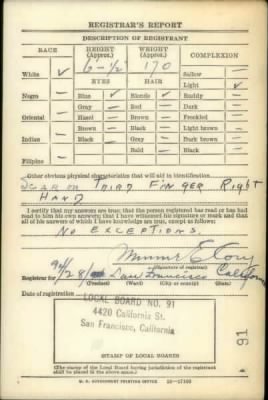 REGISTRAR'S REPORT
DESCRIPTION OF REGISTRANT
RACE HEIGHT (Approx.) WEIGHT (Approx.) COMPLEXION
6'-½" 170 Sallow —
White ✓ EYES HAIR Light ✓
Negro — Blue ✓ Blonde ✓ Ruddy —
Gray — Red — Dark —
Oriental — Hazel — Brown — Freckled —
Brown — Black — Light brown —
Indian — Black — Gray — Dark brown —
Bald — Black —
Filipino —
Other obvious physical characteristics that will aid in identification
SCAR ON THIRD FINGER RIGHT
HAND
I certify that my answers are true; that the person registered has read or has had
read to him his own answers; that I have witnessed his signature or mark and that
all of his answers of which I have knowledge are true, except as follows:
NO EXCEPTIONS.
(Signature of registrar)
Registrar for 90/28 San Francisco California
(Precinct) (Ward) (City or county) (State)
Date of registration
LOCAL BOARD NO. 91
4420 California St.
San Francisco, California
91
STAMP OF LOCAL BOARD
(The stamp of the Local Board having jurisdiction of the registrant
shall be placed in the above space.)
U. S. GOVERNMENT PRINTING OFFICE 16-17105